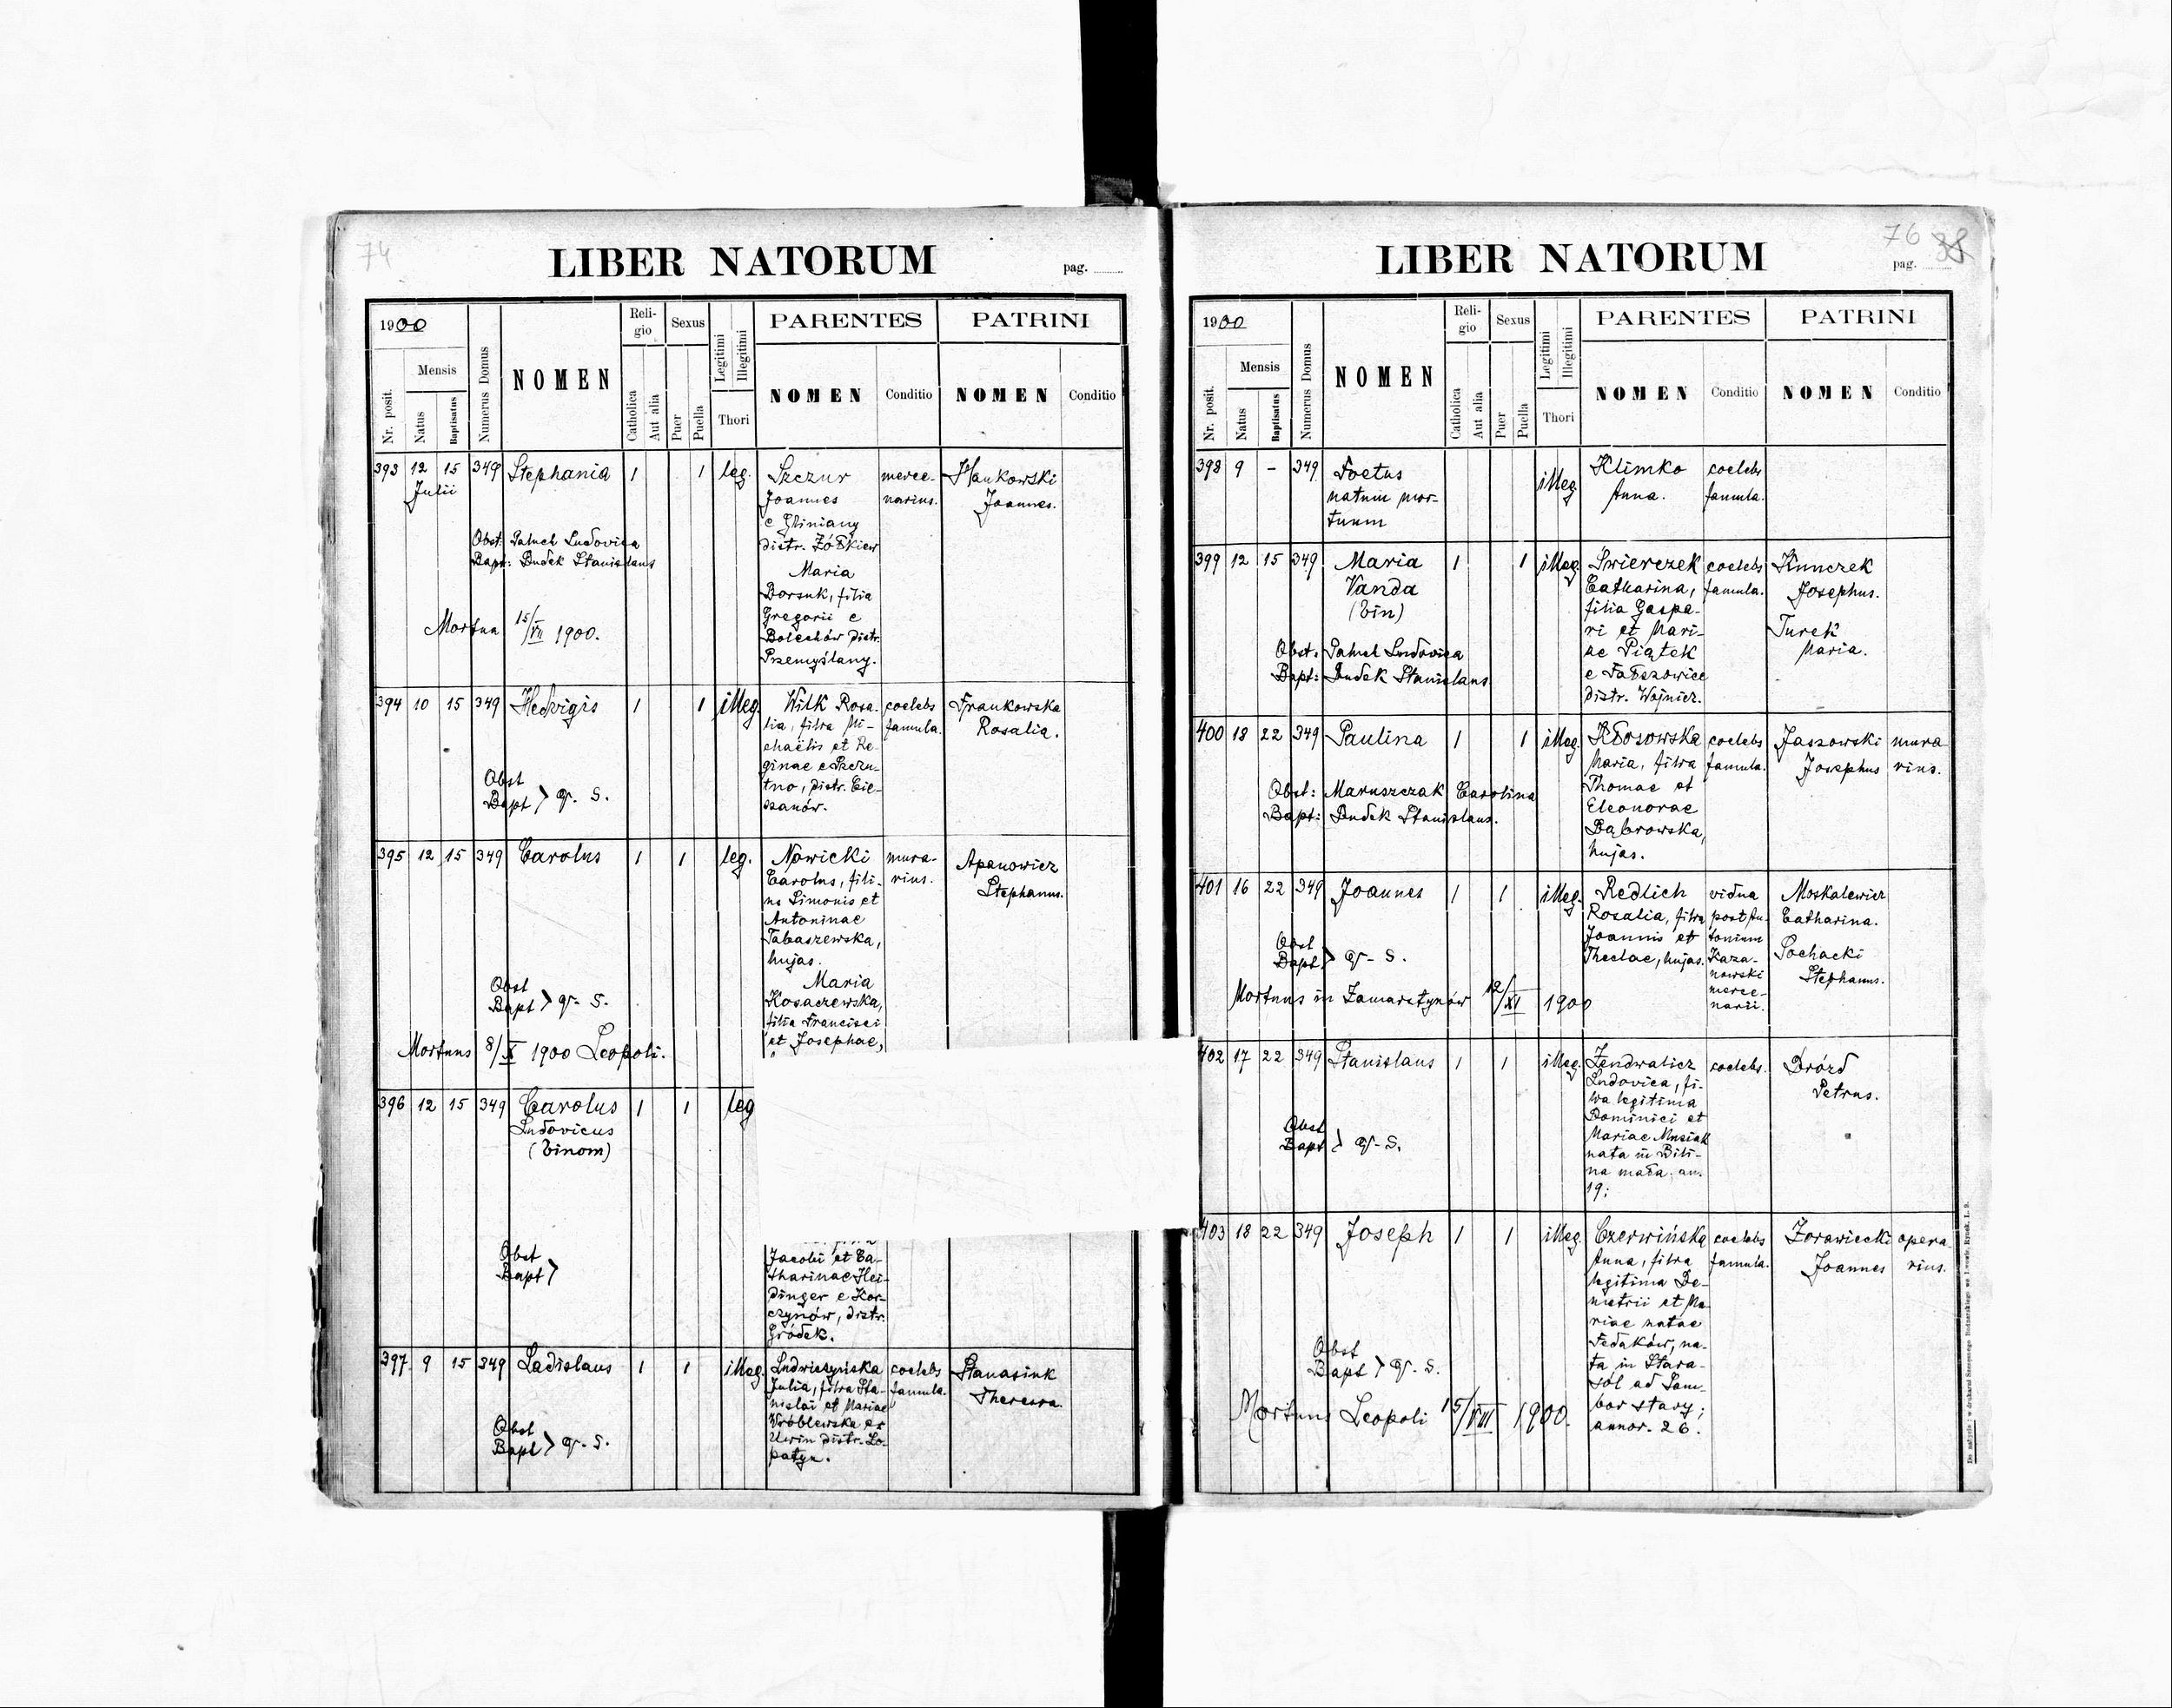 74
LIBER NATORUM
pag.
1900
Mensis
Nr. posit.
Natus
Baptisatus
Numerus Domus
NOMEN
Reli-
gio
Catholica
Aut alia
Sexus
Puer
Puella
Legitimi
Illegitimi
Thori
PARENTES
NOMEN
Conditio
PATRINI
NOMEN
Conditio
393 12 15 349 Stephania 1 1 leg.
Julii
Szczur
Joannes
e Gliniany
distr. Żółkiew
Maria
Borsuk, filia
Gregorii e
Bolechów distr.
Przemyślany.
merce-
narius.
Hankowski
Joannes.
Obst: Paluch Ludovica
Bapt: Dudek Stanislaus
Mortua 15/VII 1900.
394 10 15 349 Hedvigis 1 1 illeg.
Wilk Rosa-
lia, filia Mi-
chaëlis et Re-
ginae e
tno, distr. Cie-
szanów.
coelebs
famula.
Frankowska
Rosalia.
Obst
Bapt > q. s.
395 12 15 349 Carolus 1 1 leg.
Nowicki
Carolus, fili-
us Simonis et
Antoninae
Tabaszewska,
hujas.
Maria
Kosaczewska,
filia Francisci
et Josephae,
mura-
rius.
Apanowicz
Stephanus.
Obst
Bapt > q. s.
Mortuus 8/X 1900 Leopoli.
396 12 15 349 Carolus 1 1 leg
Ludovicus
(binom)
Obst
Bapt >
Jacobi et Ca-
tharinae Hei-
dinger e Kor-
czynów, distr.
Gródek.
397. 9 15 349 Ladislaus 1 1 illeg.
Julia, filia Sta-
nislai et Mariae
Wróblewska ex
Uwin distr. Ło-
patyn.
coelebs
famula.
Stanasiuk
Theresa
Obst
Bapt > q. s.
76 38
LIBER NATORUM
pag.
1900
Mensis
Nr. posit.
Natus
Baptisatus
Numerus Domus
NOMEN
Reli-
gio
Catholica
Aut alia
Sexus
Puer
Puella
Legitimi
Illegitimi
Thori
PARENTES
NOMEN
Conditio
PATRINI
NOMEN
Conditio
398 9 - 349 Foetus illeg
natum mor-
tuum
Klimko
Anna.
coelebs
famula.
399 12 15 349 Maria 1 1 illeg.
Vanda
(bin)
Świerczek
Catharina,
filia Gaspa-
ri et Mari-
ae Piątek
e Fałszowice
distr. Wojnicz.
coelebs
famula.
Kunczek
Josephus.
Turek
Maria.
Obst. Paluch Ludovica
Bapt: Dudek Stanislaus
400 18 22 349 Paulina 1 1 illeg.
Kłosowska
Maria, filia
Thomae et
Eleonorae
Dąbrowska,
hujas.
coelebs
famula.
Jaszowski
Josephus
mura
rius.
Obst: Maruszczak Carolina
Bapt: Dudek Stanislaus.
401 16 22 349 Joannes 1 1 illeg.
Redlich
Rosalia, filia
Joannis et
Theclae, hujas.
vidua
post An-
tonium
Kaza-
nowski
merce-
narii.
Moskalewicz
Catharina.
Sochacki
Stephanus.
Obst
Bapt > q. s.
Mortuus in Zamarstynów 12/XI 1900
402 17 22 349 Stanislaus 1 1 illeg.
Ludovica, fi-
lia legitima
Dominici et
Mariae Musiał
nata in Bili-
na mała, an.
19;
coelebs.
Drózd
Petrus.
Obst
Bapt > q. s.
403 18 22 349 Joseph 1 1 illeg.
Czerwińska
Anna, filia
legitima De-
metrii et Ma-
riae natae
Fedaków, na-
ta in Stara-
sól ad Sam-
bor stary;
annor. 26.
coelebs
famula.
Zorawiecki
Joannes
opera-
rius.
Obst
Bapt > q. s.
Mortuus Leopoli 15/VIII 1900.